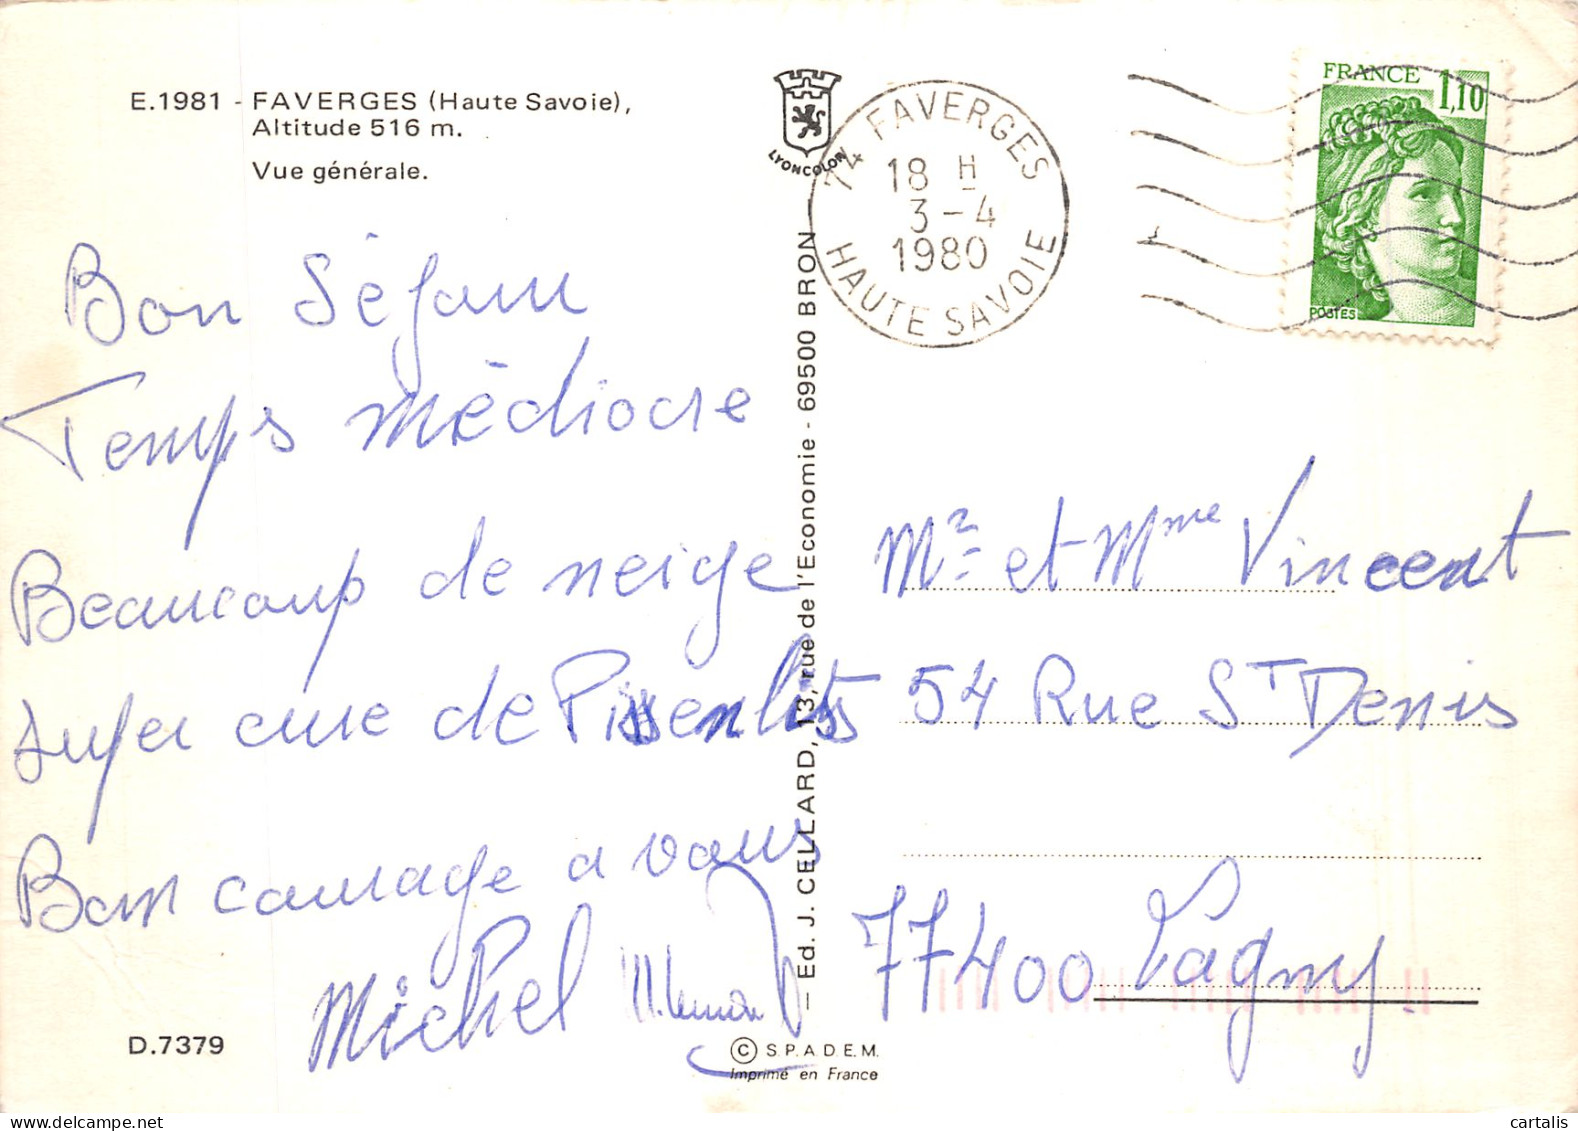 E.1981 - FAVERGES (Haute Savoie),
Altitude 516 m.
Vue générale.
LYONCOLOR
74 FAVERGES
18 H
3-4
1980
HAUTE SAVOIE
FRANCE
1,10
POSTES
Bon Séjour
Temps médiocre
Beaucoup de neige
super cure de Pissenlits
Bon courage a vous
Michel
Mr et Mme Vincent
54 Rue St Denis
77400 Lagny
— Ed. J. CELLARD, 13, rue de l'Economie - 69500 BRON —
D.7379
© S.P.A.D.E.M.
Imprimé en France
cartalis